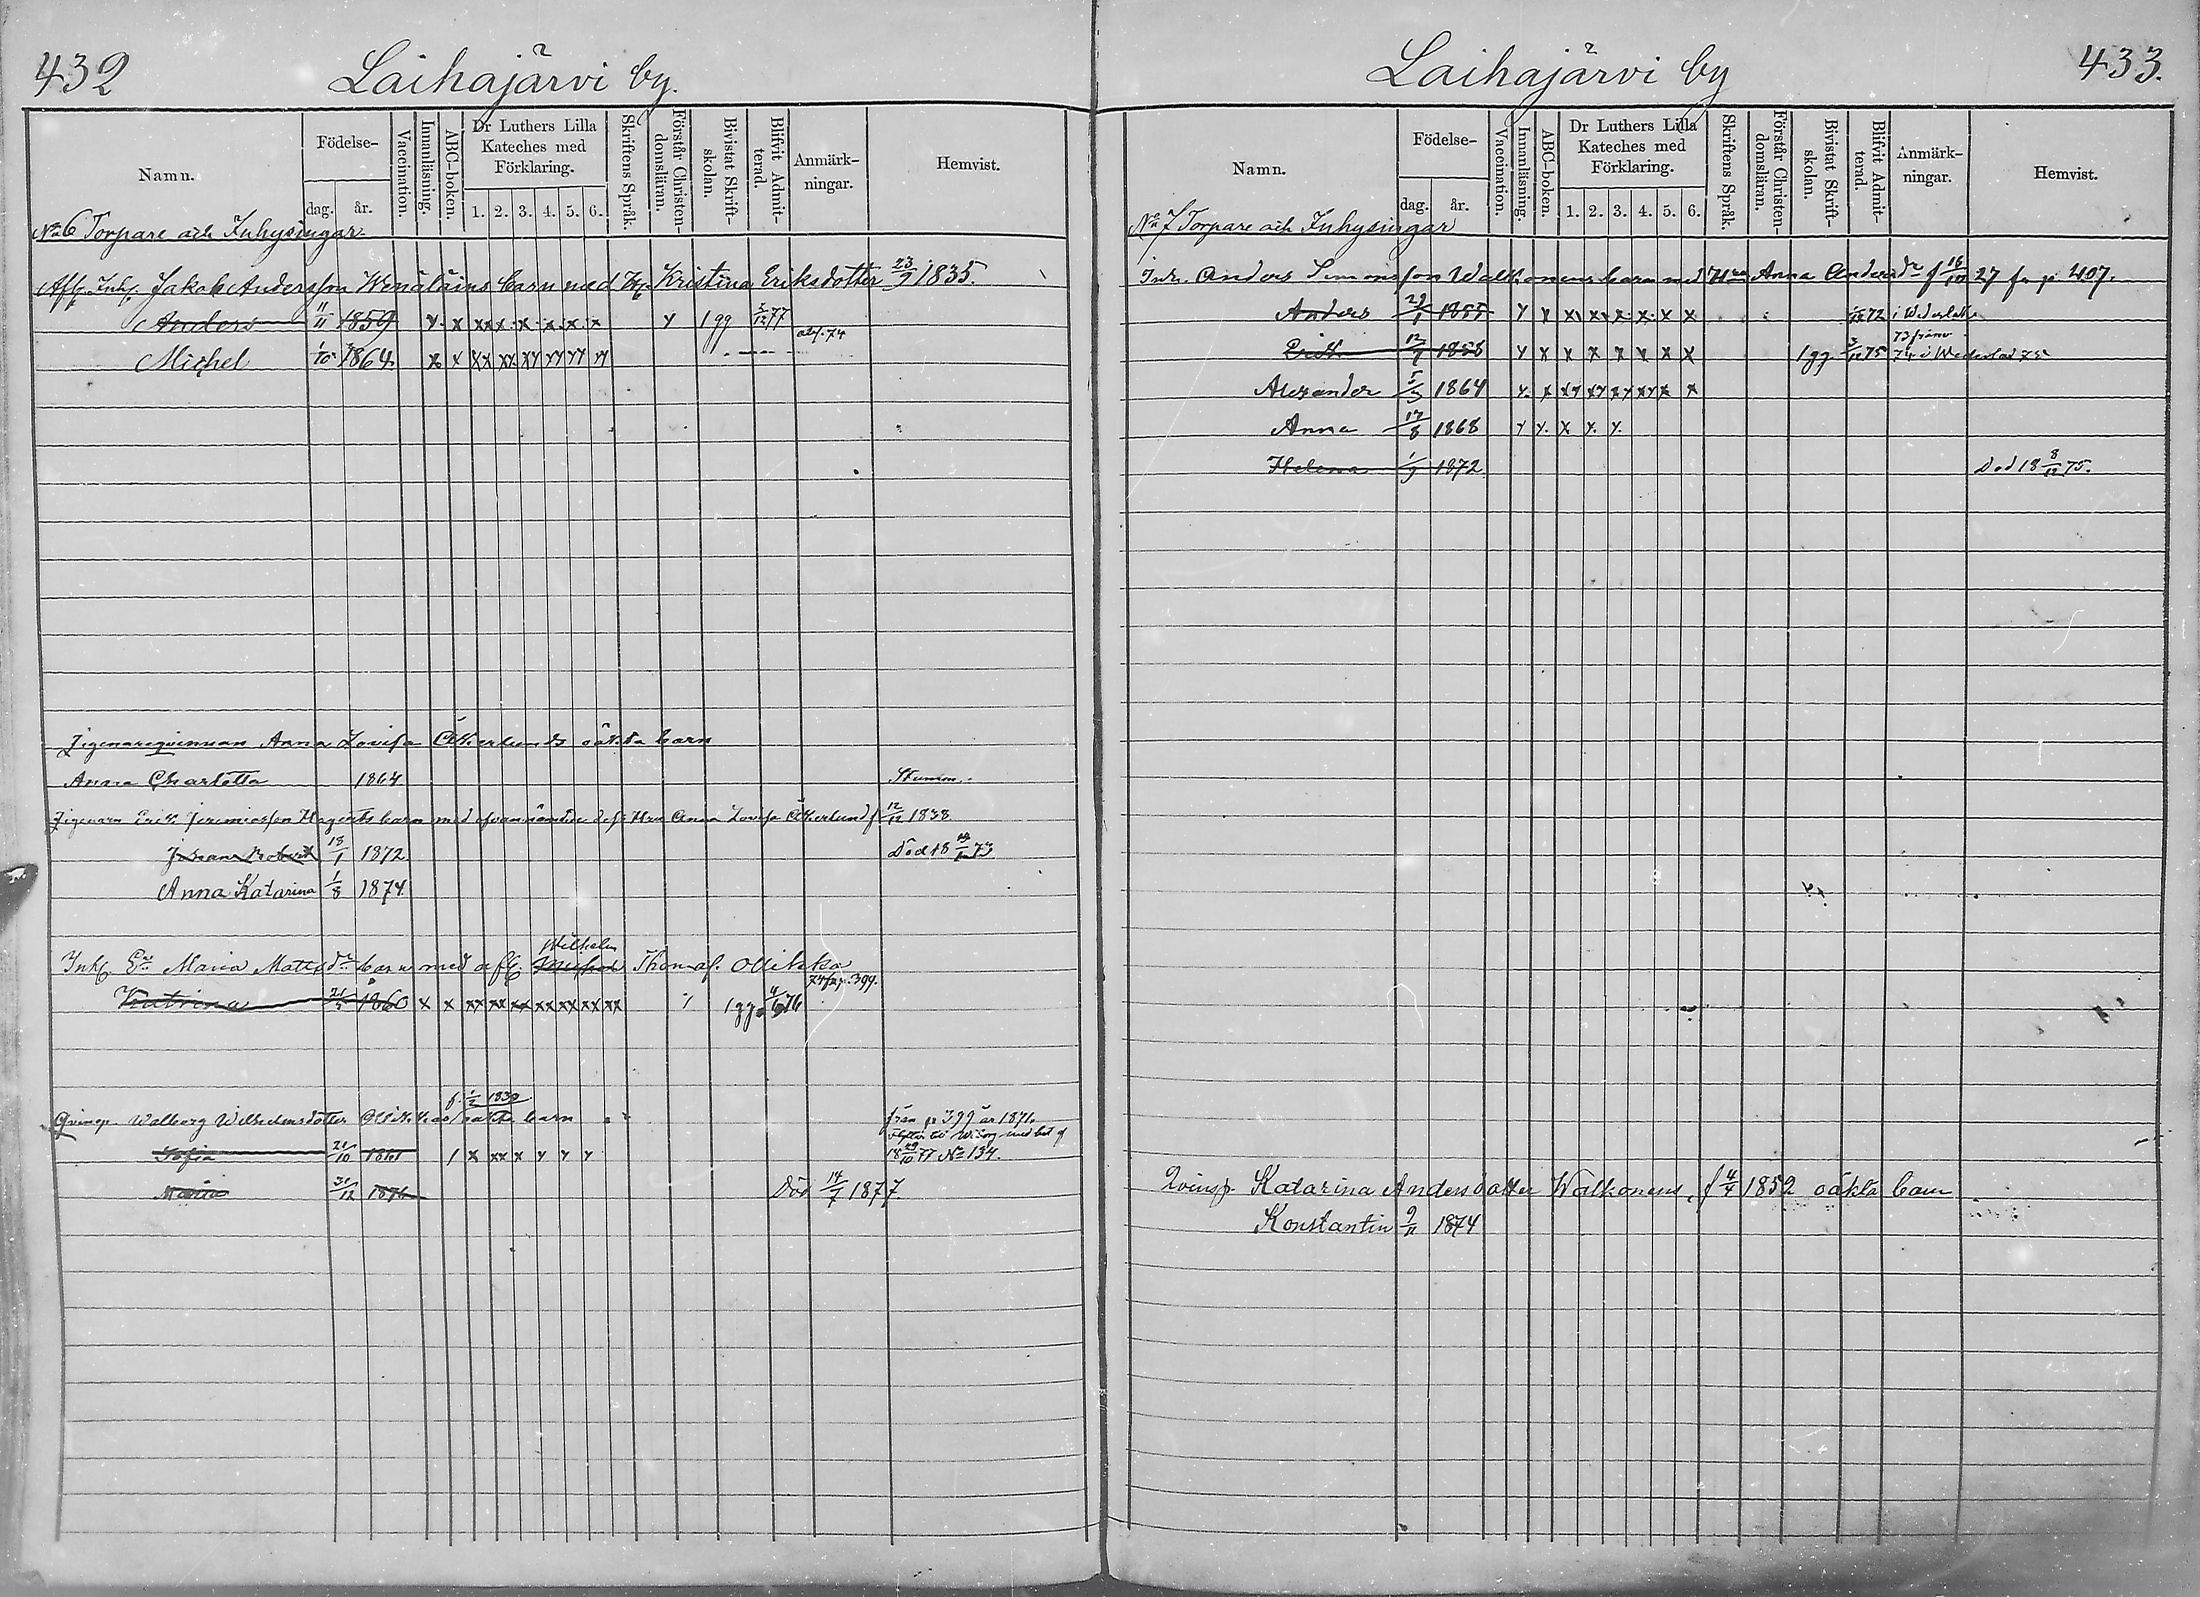 432
Laihajärvi by.
Namn. Födelse- dag. år. Vaccination. Innanläsning. ABC-boken. Dr Luthers Lilla Kateches med Förklaring. 1. 2. 3. 4. 5. 6. Skriftens Språk. Förstår Christen-domsläran. Bivistat Skrift-skolan. Blifvit Admit-terad. Anmärk-ningar. Hemvist.
No 6 Torpare och Inhysingar.
Afl. Inh. Jakob Andersson Wenäläins barn med Kristina Eriksdotter 23/9 1835.
Anders 11/11 1859 y. x xx x. x. x. x. x y 1 gg 2/12 77
Michel 1/10 1864 x x xx xx xy yy yy yy
Zigenareqvinnan Anna Lovisa Åkerlunds oäkta barn
Anna Charlotta 1864 Stum
Zigenarn Erik Jeremiasson Hagerts barn med ofvannämde Anna Lovisa Åkerlund f 12/12 1838
Johan Robert 18/1 1872 Död 18 73
Anna Katarina 1/8 1874
Wilhelm
Inh. Maria Mattsdr barn med afl. Michel Thomas. Ollikka
fr p. 399.
Katrina 21/5 1860 x x xx xx xx xx xx xx 1 gg 4/6 76
f. 1/2 1839
Qvinsp. Walborg Wilhelmsdotter Ollikkas oäkta barn från p 399 år 1876.
Sofia 21/10 1861 / x xx x y y y 18 29/10 77 No 134.
Maria 31/12 1876 Död 14/7 1877
433.
Laihajärvi by
Namn. Födelse- dag. år. Vaccination. Innanläsning. ABC-boken. Dr Luthers Lilla Kateches med Förklaring. 1. 2. 3. 4. 5. 6. Skriftens Språk. Förstår Christen-domsläran. Bivistat Skrift-skolan. Blifvit Admit-terad. Anmärk-ningar. Hemvist.
No 7 Torpare och Inhysingar
Inh. Anders Simonsson Walkonens barn med Hu Anna Andersdr f 16/10 27 fr p 407.
Anders 29/1 1855 y y x x x x x x 72 i Wederlaks
Erik 1858 y x x x x x x x 1 gg 75
Alexander 5/3 1864 y. x xy xy xy xy x x
Anna 17/8 1868 y y. x y. y.
Helena 1/9 1872 Död 18 8/12 75.
Qvinsp. Katarina Andersdotter Walkonens, f 4/4 1852 oäkta barn
Konstantin 9/11 1874